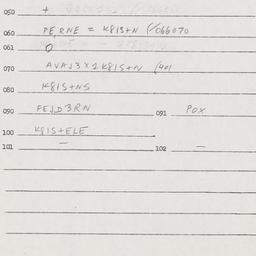 050 +
060 PERNE = K81S+N (/066070
061 0
070 AVAJ3X2K81S+N (401
080 K81S+NS
090 FEJD3RN 091 POX
100 K81S+ELE
101 — 102 —